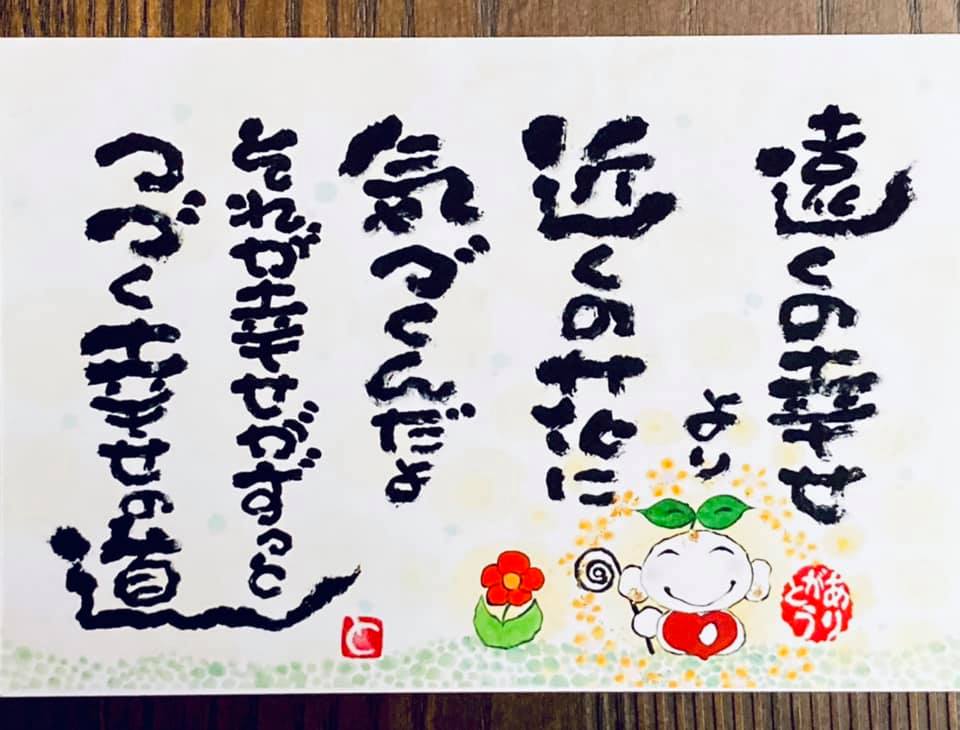 遠くの幸せ
より
近くの花に
気づくんだよ
それが幸せがずっと
つづく幸せの道
ありがとう
と